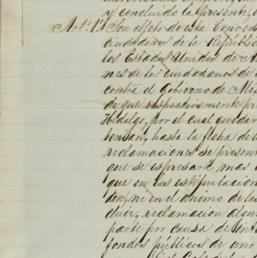 y concluido la presente,
Art. 1º Son objeto de esta Conven
ciudadanos de la República
los Estados Unidos de A
nes de los ciudadanos de
contra el Gobierno de Mé
de que respectivamente pr
Hidalgo, por el cual quedar
tensan, hasta la fecha de
reclamaciones se presen
que se espresan mas
que en las estipulacion
ten, ni en el animo de la
cluir, reclamacion algun
parte por causa de
fondos públicos de uno